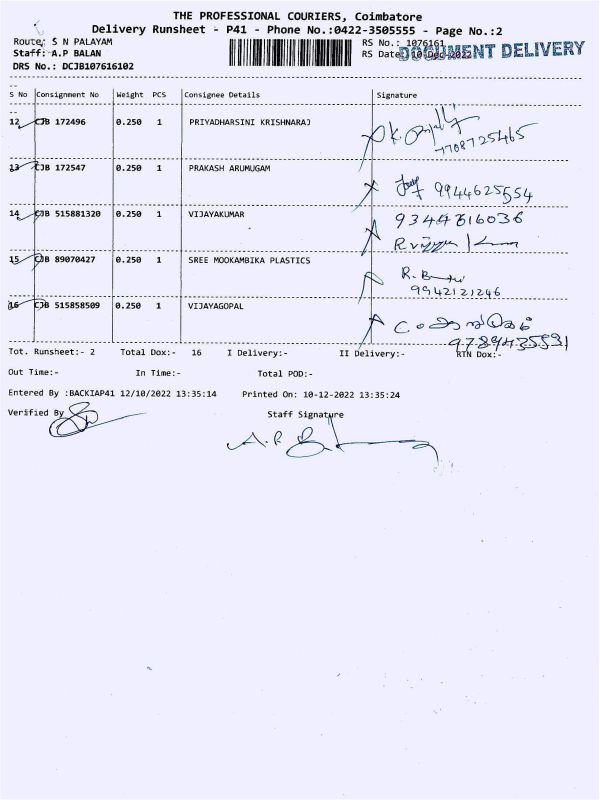 THE PROFESSIONAL COURIERS, Coimbatore
Delivery Runsheet - P41 - Phone No.:0422-3505555 - Page No.:2
Route: S N PALAYAM
RS No.: 1076161
Staff: A.P BALAN
RS Date: 10-Dec-2022
DOCUMENT DELIVERY
DRS No.: DCJB107616102
S No Consignment No Weight PCS Consignee Details Signature
12 CJB 172496 0.250 1 PRIYADHARSINI KRISHNARAJ
7708725465
13 CJB 172547 0.250 1 PRAKASH ARUMUGAM
9944625554
14 CJB 515881320 0.250 1 VIJAYAKUMAR
15 CJB 89070427 0.250 1 SREE MOOKAMBIKA PLASTICS
9942121246
16 CJB 515858509 0.250 1 VIJAYAGOPAL
Tot. Runsheet:- 2 Total Dox:- 16 I Delivery:- II Delivery:- RTN Dox:-
Out Time:- In Time:- Total POD:-
Entered By :BACKIAP41 12/10/2022 13:35:14 Printed On: 10-12-2022 13:35:24
Verified By Staff Signature